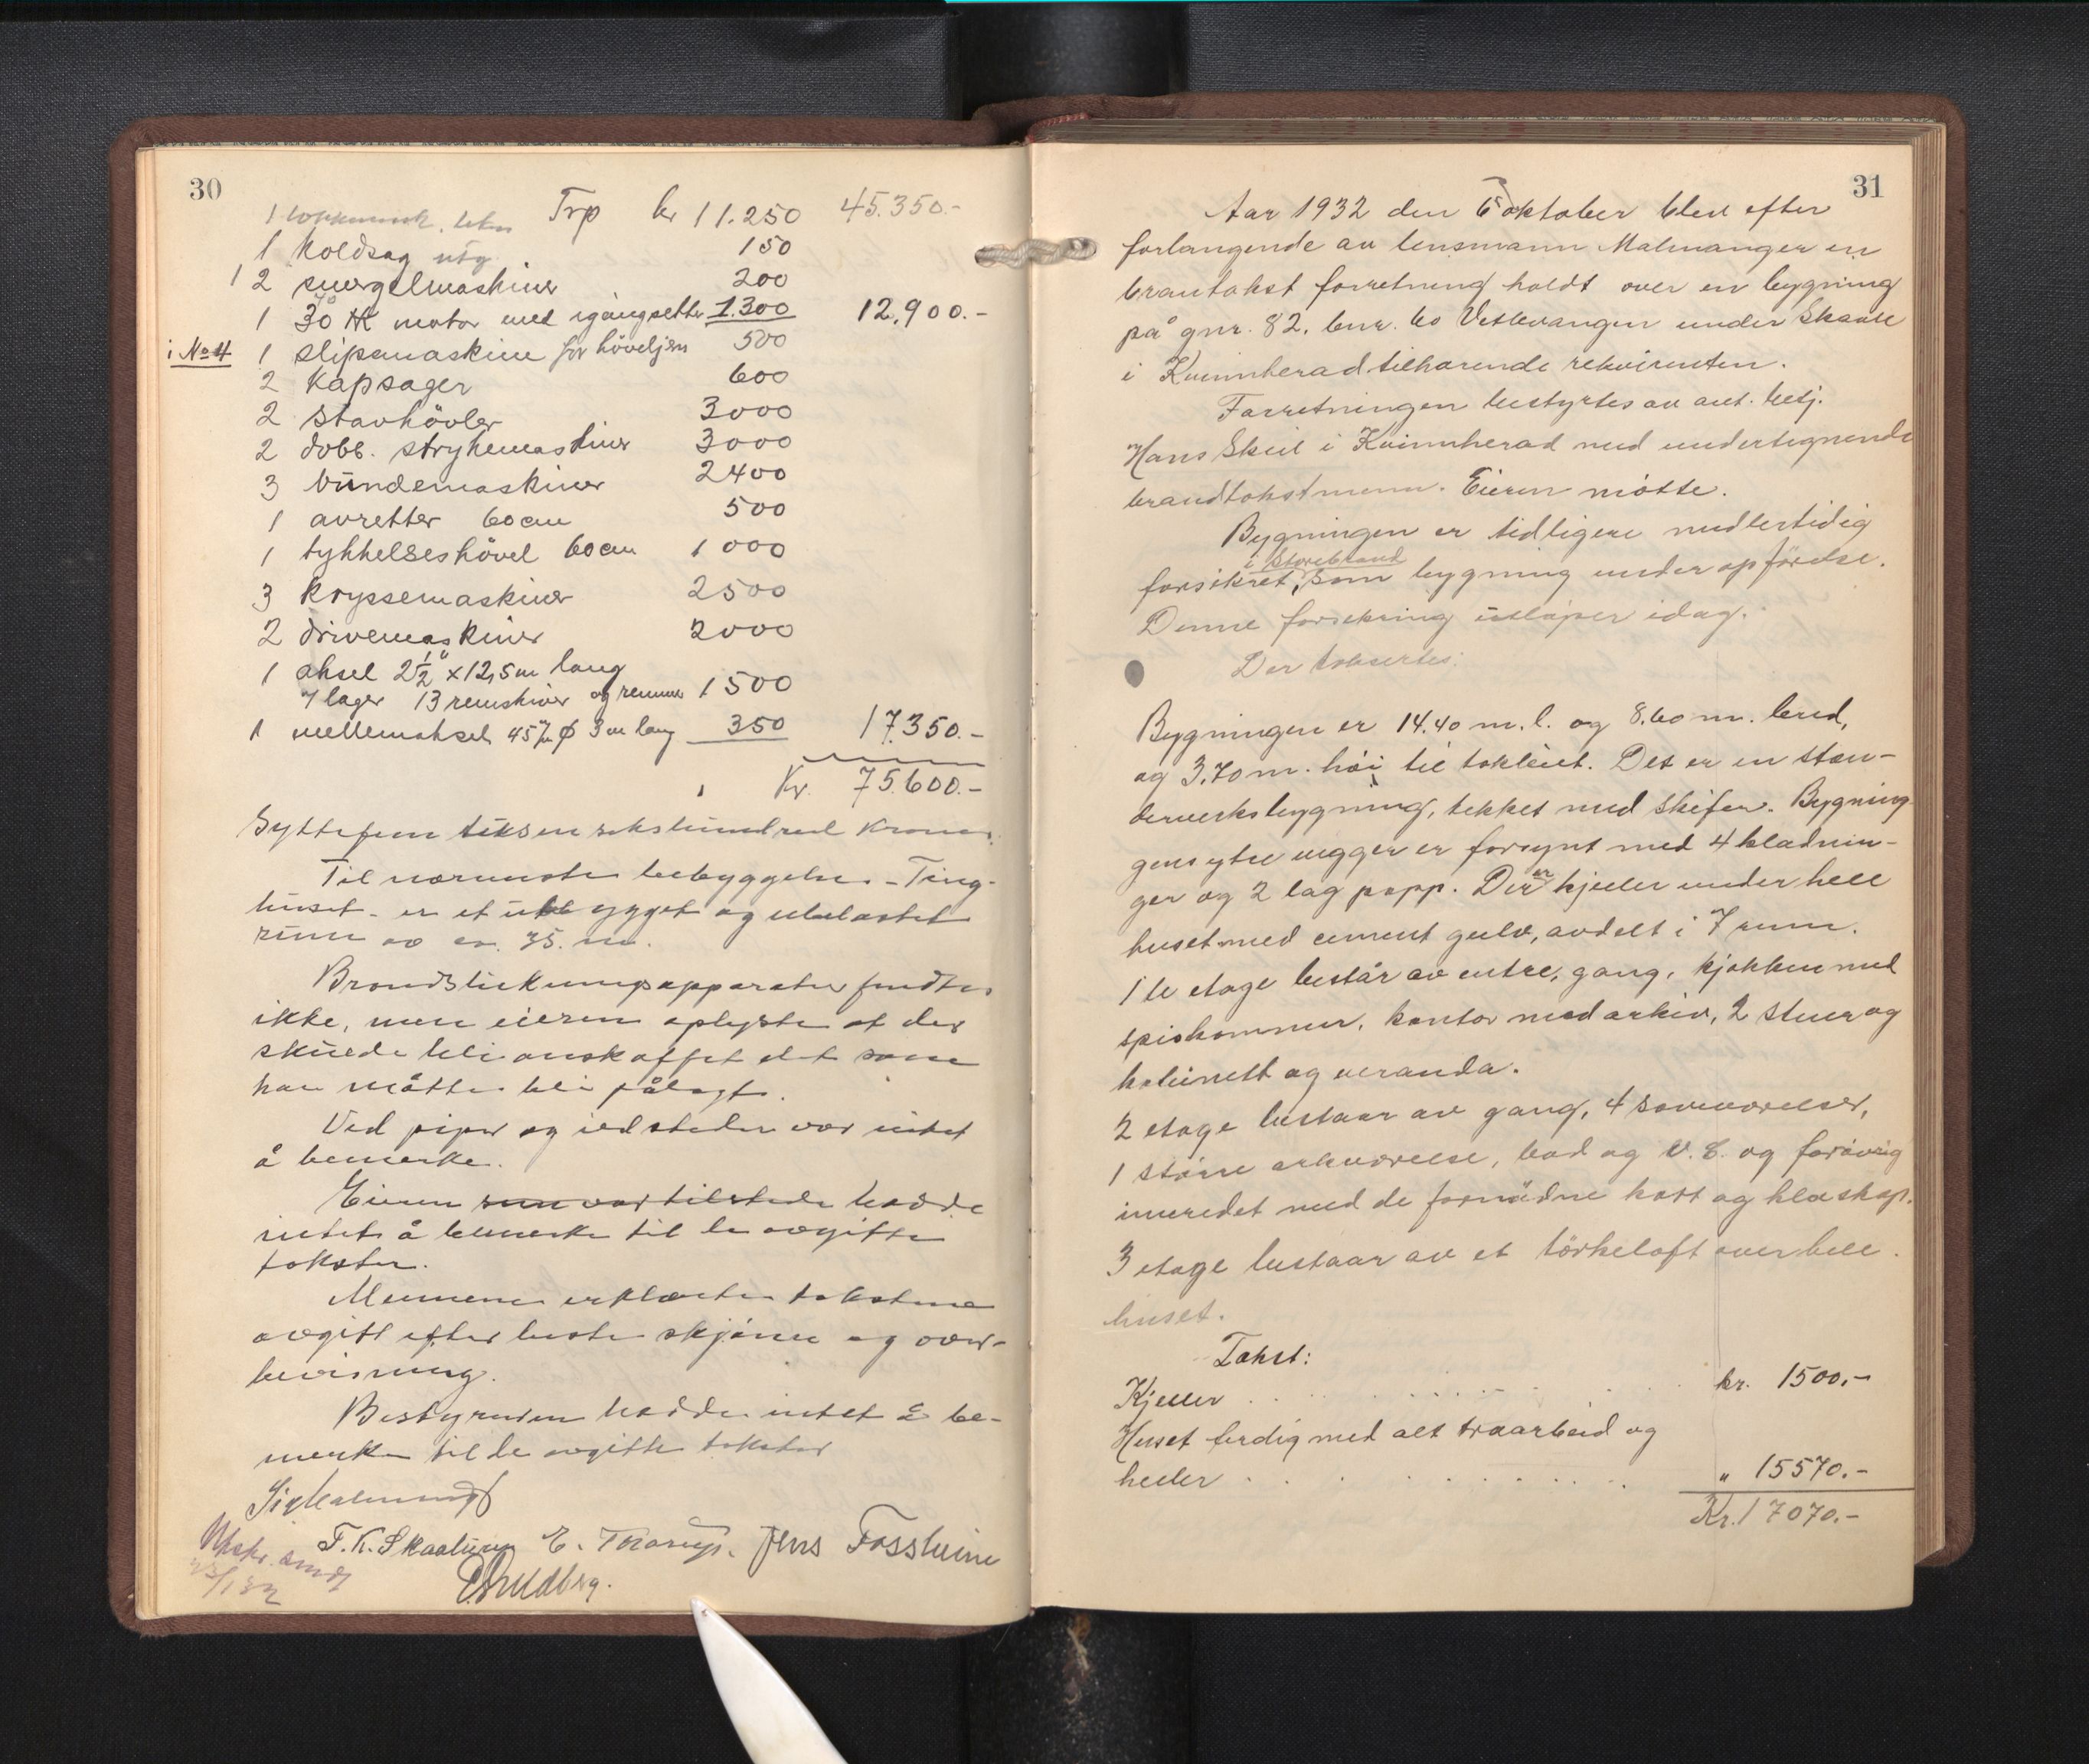 30
Trp kr 11.250 45.350.-
1 koldsag utg 150
1 2 smergelmaskiner 200
1 30 HK motor med igangsetter 1.300 12.900.-
i No 4 1 slipemaskine for höveljern 500
2 Kapsager 600
2 stavhövler 3000
2 dobb. strykemaskiner 3000
3 bundemaskiner 2400
1 avretter 60 cm 500
1 tykkelseshövel 60 cm 1000
3 kryssemaskiner 2500
2 drivemaskiner 2000
1 aksel 2½" x 12,5 m lang
7 lager 13 remskiver og remmer 1500
1 mellemaksel 45 m/m φ 3 m lang 350 17.350.-
Kr. 75.600.-
Syttifem tusen sekshundred kroner.
Til nærmeste bebyggelse - Ting-
huset - er et ubebygget og ubelastet
rum av ca. 35. m.
Brandslukningsapparater fandtes
ikke, men eieren oplyste at der
skulde bli anskaffet det som
han måtte bli pålagt.
Ved piper og ildsteder var intet
å bemerke.
Eieren som var tilstede hadde
intet å bemerke til de avgitte
takster.
Mennene erklærte takstene
avgitt efter beste skjönn og over-
bevisning.
Bestyreren hadde intet å be-
merke til de avgitte takster
F. K. Skaaluren E. Thorup. Jens Fossheim
Utskr. sendt
31
Aar 1932 den 6 oktober blev efter
forlangende av lensmann Malmanger en
brantakst forretning holdt over en bygning
på gnr. 82. bnr. 60 Vetlevangen under Skaale
i Kvinnherad tilhørende rekvirenten.
Forretningen bestyrtes av aut. besj.
Hans Skeie i Kvinnherad med undertegnende
brandtakstmenn. Eieren møtte.
Bygningen er tidligere midlertidig
i Storebrand
forsikret, som bygning under opförelse.
Denne forsikring utløper idag.
Der taksertes:
Bygningen er 14.40 m. l. og 8.60 m. bred,
og 3.70 m. høi til takskiet. Det er en stæn-
derverksbygning, tekket med skifer. Bygnin-
gens ytre vegger er forsynt med 4 kladnin-
ger og 2 lag papp. Der er kjeller under hele
huset med cement gulv, avdelt i 7 rum.
1ste etage består av entre, gang, kjøkken med
spiskammer, kontor med arkiv, 2 stuer og
kabinett og veranda.
2 etage bestaar av gang, 4 soveværelser,
1 større arkværelse, bad og V. C. og forövrig
innredet med de fornödne kott og kleskap.
3 etage bestaar av et törkeloft over hele
huset.
Takst:
Kjeller . . . . . . kr. 1500,-
Huset ferdig med alt træarbeid og
heller . . . . . . " 15570.-
Kr. 17070.-